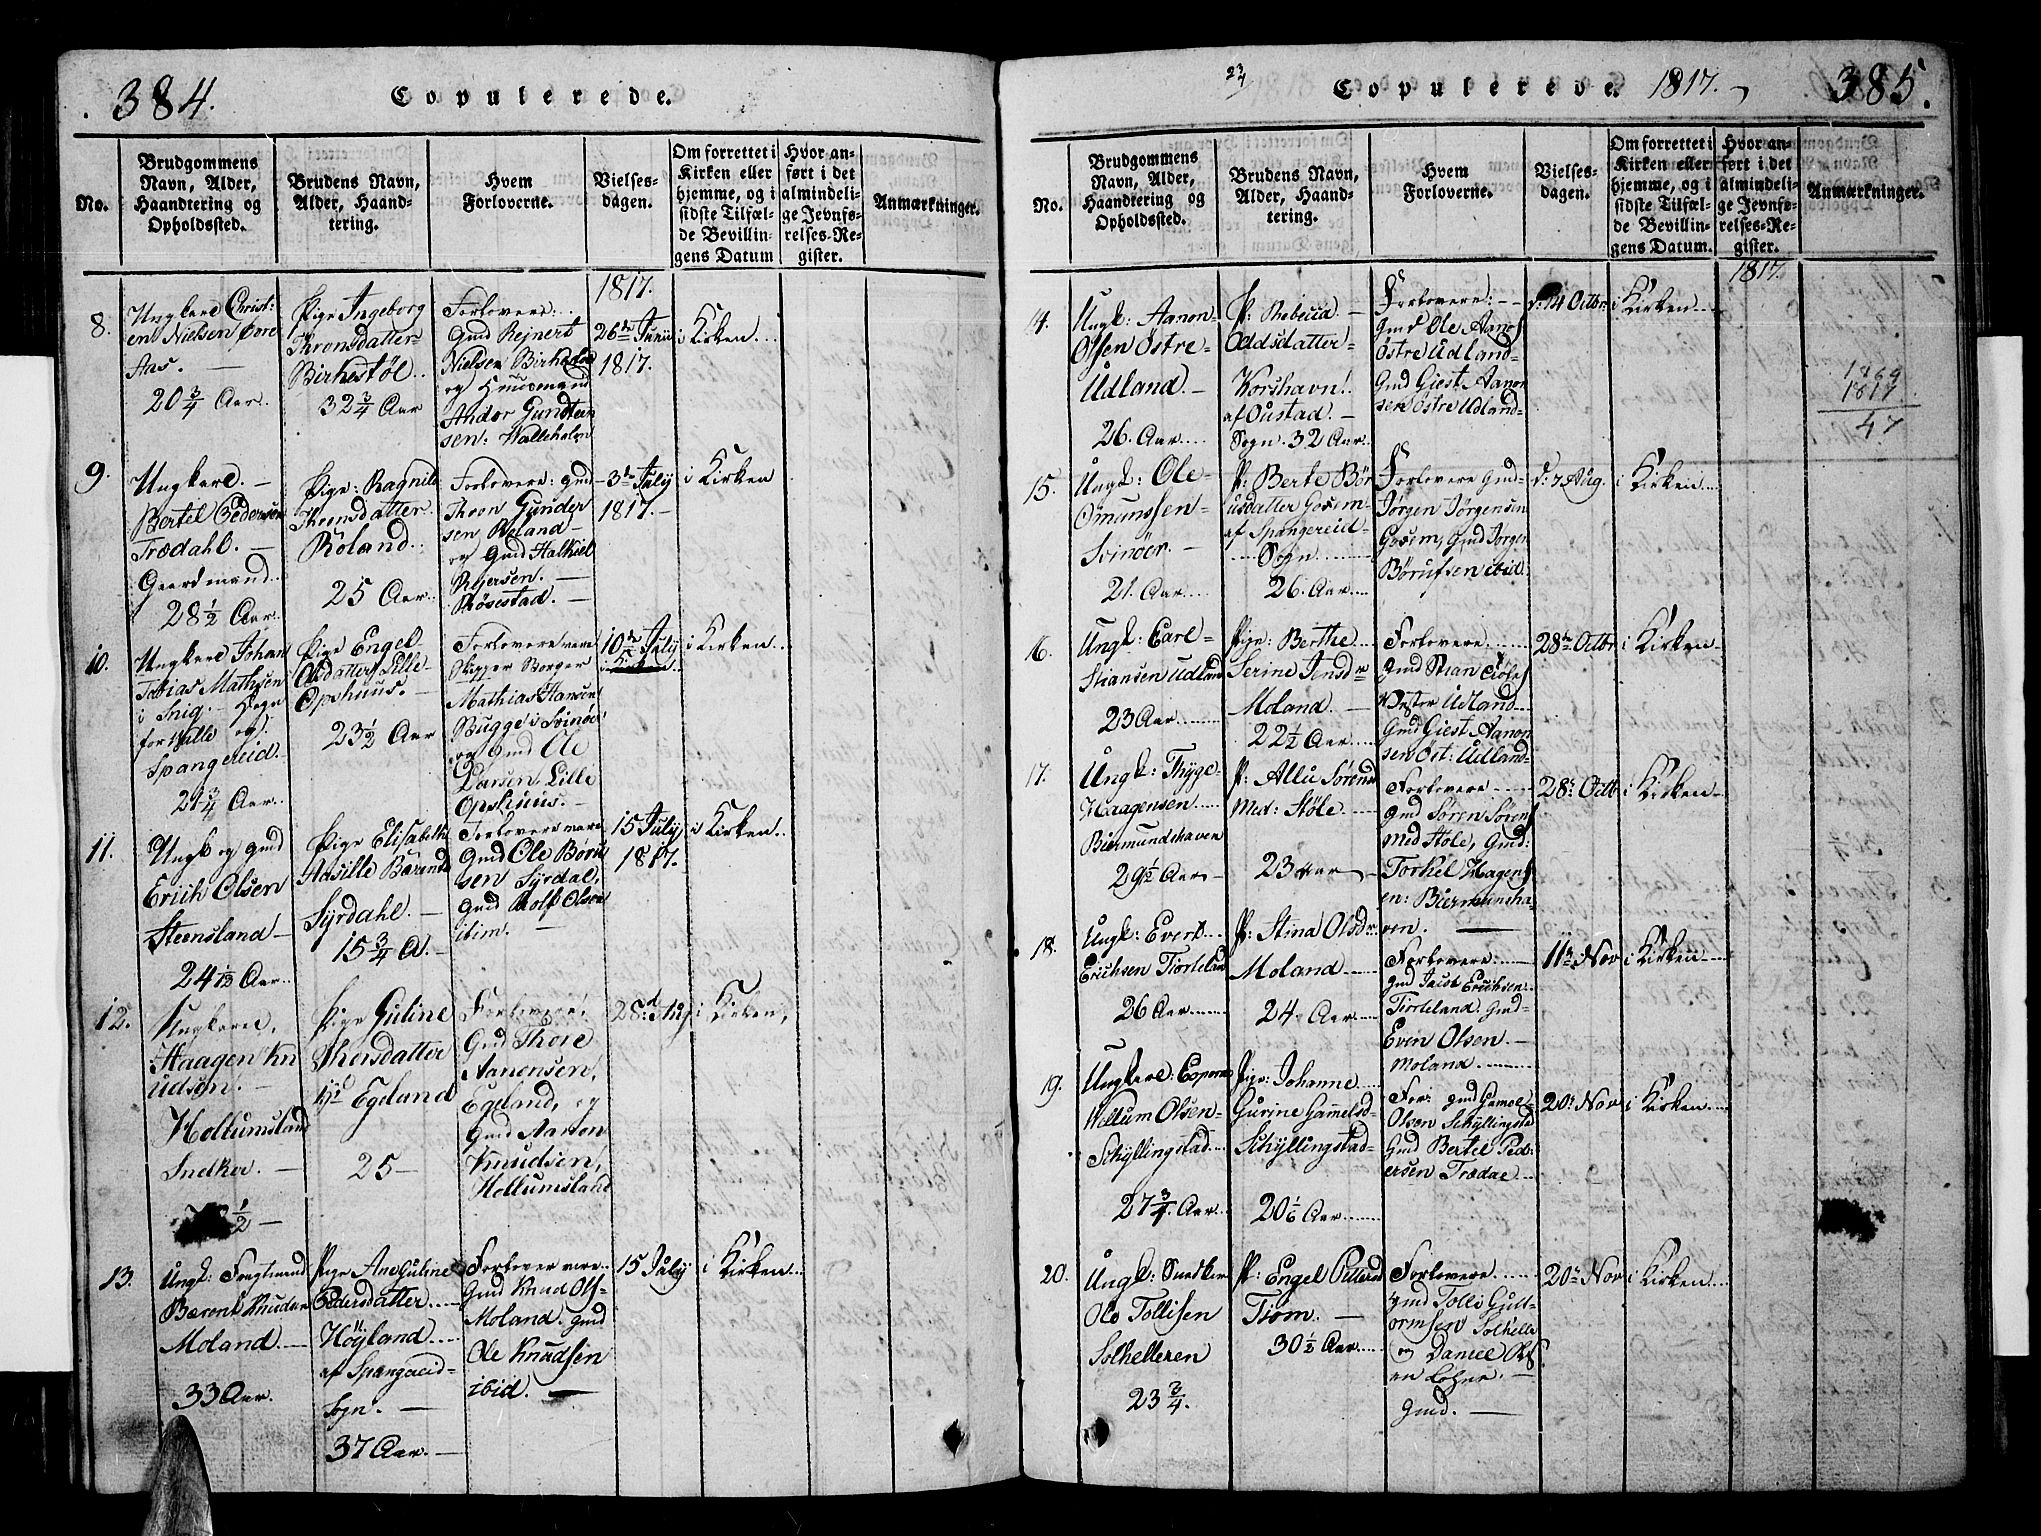 384.
Copulerede.
No.
Brudgommens
Navn, Alder,
Haandtering og
Opholdssted.
Brudens Navn,
Alder, Haand-
tering.
Hvem
Forloverne.
Vielses-
dagen.
Om forrettet i
Kirken eller
hjemme, og i
sidste Tilfæl-
de Bevillin-
gens Datum
Hvor an-
ført i det
almindeli-
ge Jevnfø-
relses-Re-
gister.
Anmærkninger.
1817.
8.
Ungkarl Christ:
en Nielsen øvre
Aas. —
20 3/4 Aar.
Pige Ingeborg
Thronsdatter
Birkestøl
32 3/4 Aar
Forlovere:
Gmd Rejnert
Nielsen
og
Andor
sen: Walleholm
26de Junii
1817.
i Kirken
9.
Ungkarl. —
Bertel Pedersen
Trædahl. —
Gaardmand
28 1/2 Aar
Pige: Ragnild
Thronsdatter
Roland.
25 Aar.
Forlovere: Gmd
Thron Gunder
sen Roland
og Gmd
Rejersen. —
Røsestad. —
3de July
1817.
i Kirken
10.
Ungkarl Johan
Tobias Mathsen
i Snig. — Sogn
for Halle og
Spangereid.
21 3/4 Aar.
Pige Engel
Olsdatter Lille
Opshuus. —
23 1/2 Aar
Forlovere vare
Skipper Borger
Mathias Hansen
Bugge i Svinøer
og Gmd Ole
Larsen Lille
Opshuus. —
10de July
i Kirken
11.
Ungk og Gmd
Erich Olsen
Steensland —
24 1/2 Aar
Pige Elisabeth
Adsille Barents
Syrdahl. —
15 3/4 A. —
Forlovere vare
Gmd Ole Børu
sen Syrdal,
Gmd Rolf Olsen
ibim. —
15 July
1817.
i Kirken
12.
Ungkarl,
Haagen Kn
udsen. —
Hollumsland
Snedker. —
1/2 —
Pige Guline
Thorsdatter
Egeland
25 —
Forlovere:
Gmd Thore
Aanensen,
Egeland, og
Gmd Aanon
Knudsen,
Hollumsland
28d Aug
i Kirken,
13.
Ungk:
Barent Knudsen
Moland. —
33 Aar.
Pige Ane Guline
Pedersdatter
Høyland
af Spangereid
Sogn. —
37 Aar. —
Forlover vare
Gmd Knud Ols
Moland. Gmd
Ole Knudsen
ibid. —
15 July
i Kirken
Copulerede. 1817.
385.
No.
Brudgommens
Navn, Alder,
Haandtering og
Opholdssted.
Brudens Navn,
Alder, Haand-
tering.
Hvem
Forloverne.
Vielses-
dagen.
Om forrettet i
Kirken eller
hjemme, og i
sidste Tilfæl-
de Bevillin-
gens Datum.
Hvor an-
ført i det
almindeli-
ge Jevnfø-
relses-Re-
gister.
Anmærkninger.
1817.
14.
Ungk: Aanon
Olsen Østre
Udland. —
26. Aar
P: Rebecca —
Oddsdatter
Korshavn!
af Oustad. —
Sogn. 32 Aar
Forlovere: —
Gmd Ole Aanos
Østre Udland
Gmd Giest Aanon
sen Østre Udland
d: 14 Octbr
i Kirken
1864
1817
47
15.
Ungk: Ole
Omunssen
Svinöer. —
21. Aar
P: Berte Bör
usdatter Gosem
af Spangereid
Sogn
26. Aar
Forlovere Gmd
Jørgen Jørgensen
Gosem, Gmd Jørgen
Børufsen ibid
d: 7 Aug.
i Kirken
16.
Ungk: Carl
Stiansen Udland
23 Aar
Pige: Berthe
Serine Jensdr
Moland. —
22 1/2 Aar
Forlovere
Gmd Stian
Vester Udland
Gmd Giest Aanon
sen Øst: Udland
28de Octbr
i Kirken
17.
Ungk: Thyge
Haagensen
Biermundshaven
29 1/2 Aar
P: Allu Sørens
Med: Støle
23 Aar
Forlovere
Gmd Sören Sören
med Støle, Gmd:
Torkel Hagens
en: Biermunsha
ven. —
28: Octb
i Kirken
18.
Ungk: Evert
Erichsen Tiorteland
26 Aar
P: Stina Olsdr.
Moland
24 Aar
Forlovere
Gmd Erichsen
Tiorteland. Gmd
Even Olsen. —
Moland.
11te Nov
i Kirken
19.
Ungkarl: Espen
Willum Olsen
Schyllingstad
27 3/4. Aar
Pige: Johanne
Gurine Gamelsd
Schyllingstad
20 1/6 Aar
For: Gmd Gamel
Olsen Schyllingstad
Gmd Bertel Ped
ersen Trædae
20: Nov
i Kirken
20.
Ungk: Snedker
Ole Tollisen
Solhelleren
23 3/4.
P: Engel Pitersd
Tiøm. —
30 1/2 Aar
Forlovere
Gmd Tolli Gutt
ormsen Solhelle
og Daniel Ols
en
Gmd. —
20de Nov
i Kirken